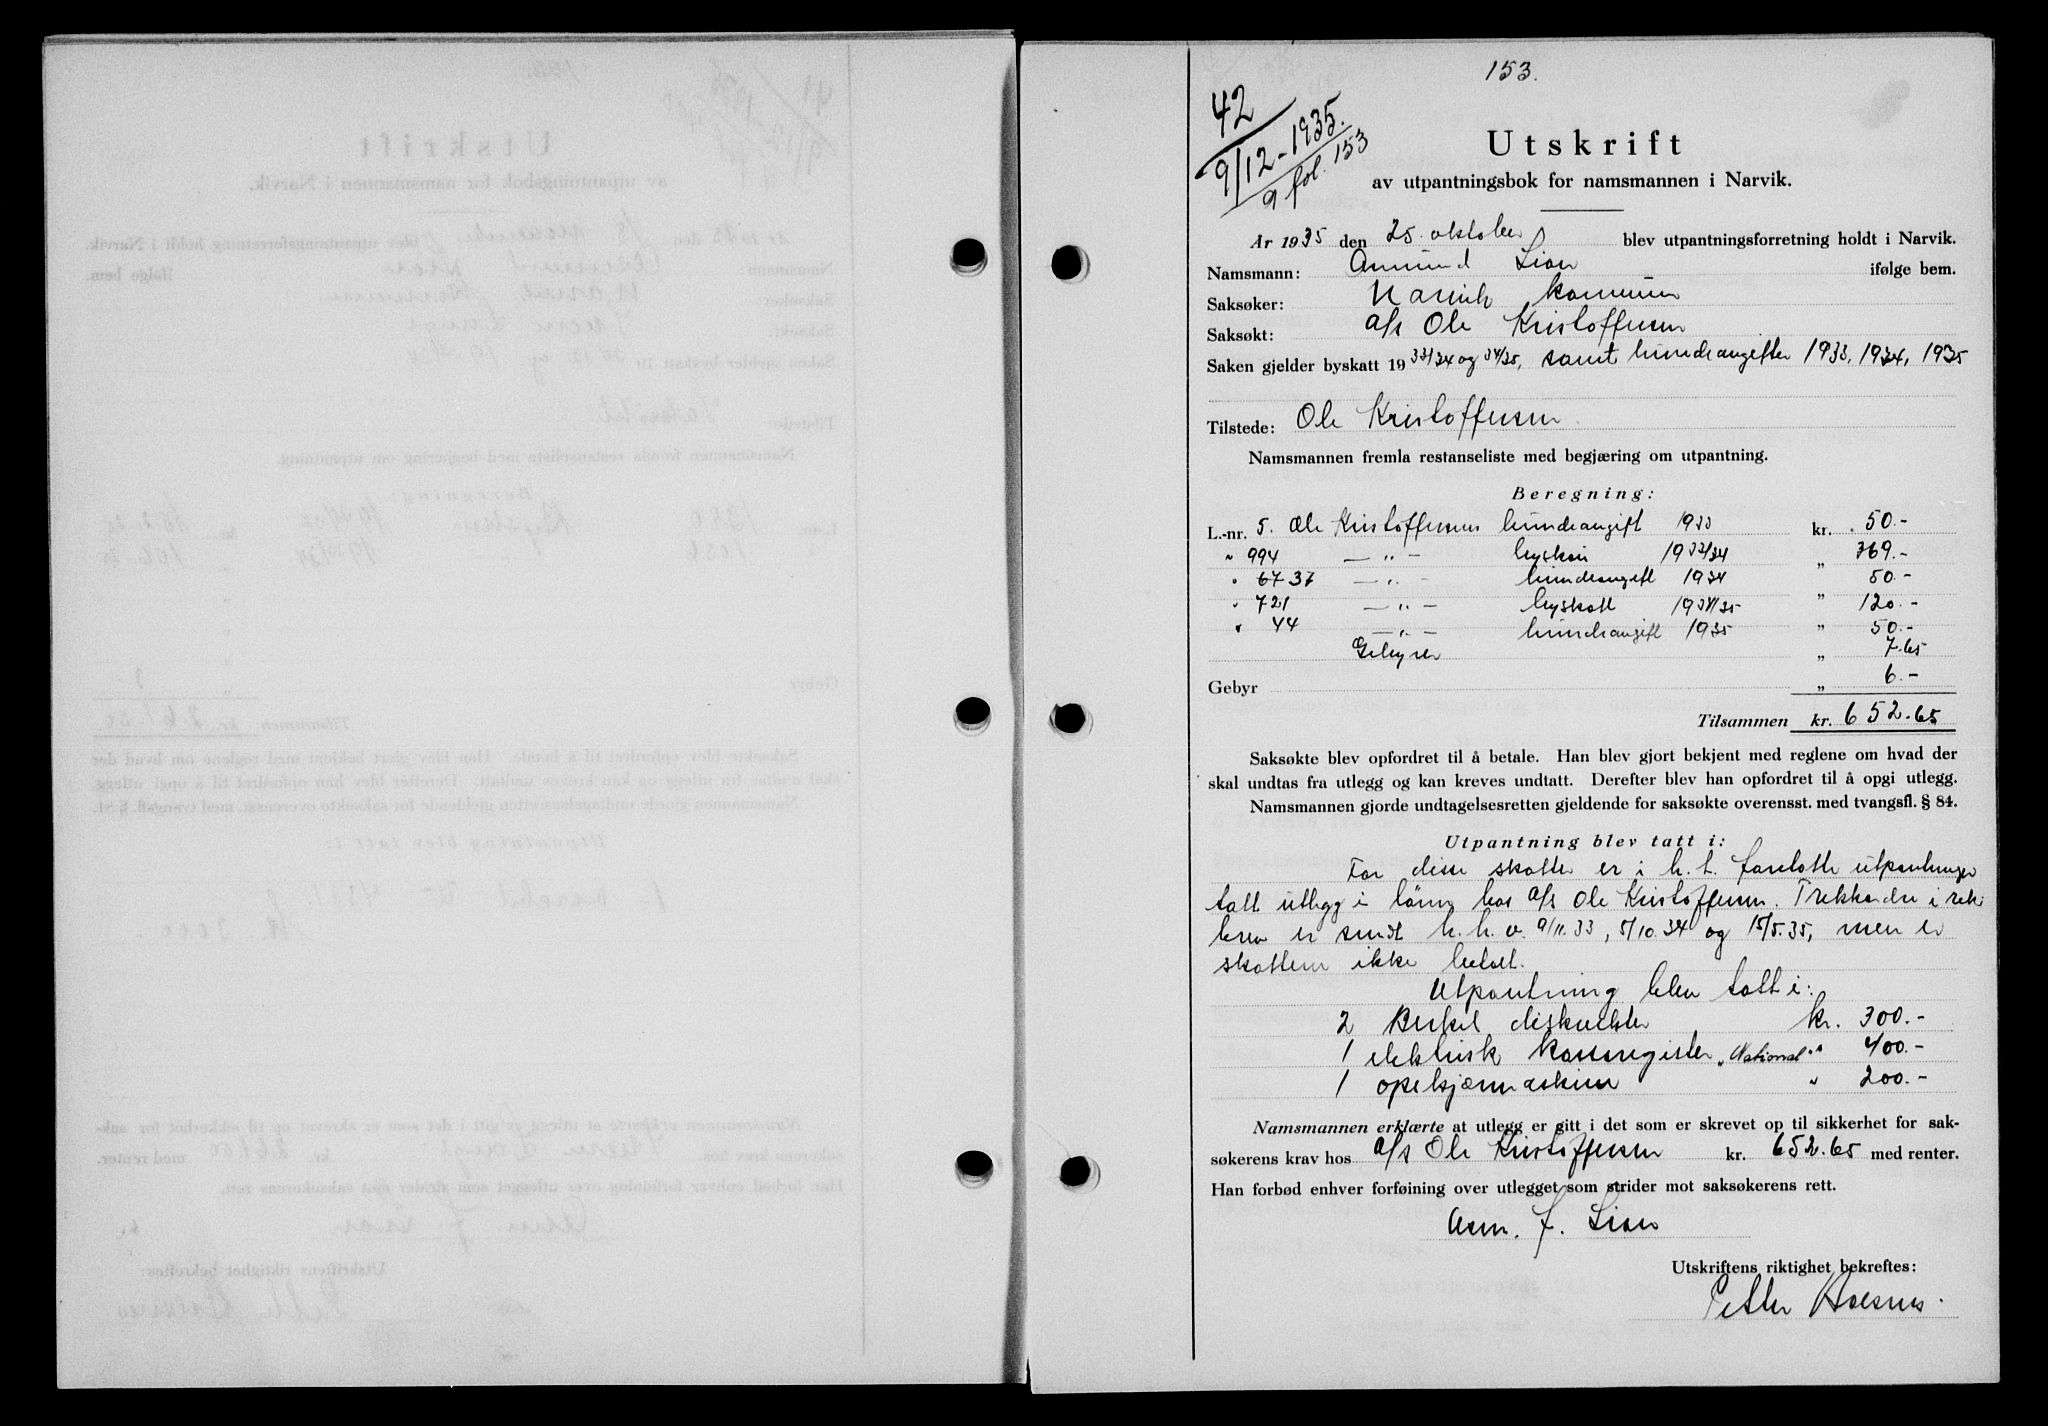 153.
42
9/12-1935.
9 fol. 153
Utskrift
av utpantningsbok for namsmannen i Narvik.
År 1935 den 25. oktober blev utpantningsforretning holdt i Narvik.
Namsmann: Amund Lian ifølge bem.
Saksøker: Narvik kommune
Saksøkt: A/S Ole Kristoffersen
Saken gjelder byskatt 19 33/34 og 34/35, samt hundeavgifter 1933, 1934, 1935
Tilstede: Ole Kristoffersen.
Namsmannen fremla restanseliste med begjæring om utpantning.
Beregning:
L.-nr. 5. Ole Kristoffersens hundeavgift 1933 kr. 50.-
" 994 — " — byskatt 1933/34 " 369.-
" 6737 — " — hundeavgift 1934 50.-
" 721 — " — byskatt 1934/35 " 120.-
" 44 — " — hundeavgift 1935 " 50.-
Gebyrer " 7.65
Gebyr " 6.-
Tilsammen kr. 652.65
Saksøkte blev opfordret til å betale. Han blev gjort bekjent med reglene om hvad der
skal undtas fra utlegg og kan kreves undtatt. Derefter blev han opfordret til å opgi utlegg.
Namsmannen gjorde undtagelsesretten gjeldende for saksøkte overensst. med tvangsfl. § 84.
Utpantning blev tatt i:
For disse skatter er i h. t. foretatte utpantninger
tatt utlegg i lønn hos A/S Ole Kristoffersen. Trekkordre i rek.
brev er sendt h. h. v. 9/11.33, 5/10.34 og 15/5.35, men er
skatten ikke betalt.
Utpantning blev tatt i:
2 Berkel diskvekter kr. 300.-
1 elektrisk kassaregister "National" " 400.-
1 opskjærmaskin " 200.-
Namsmannen erklærte at utlegg er gitt i det som er skrevet op til sikkerhet for sak-
søkerens krav hos A/S Ole Kristoffersen kr. 652.65 med renter.
Han forbød enhver forføining over utlegget som strider mot saksøkerens rett.
Am. J. Lian
Utskriftens riktighet bekreftes:
Petter